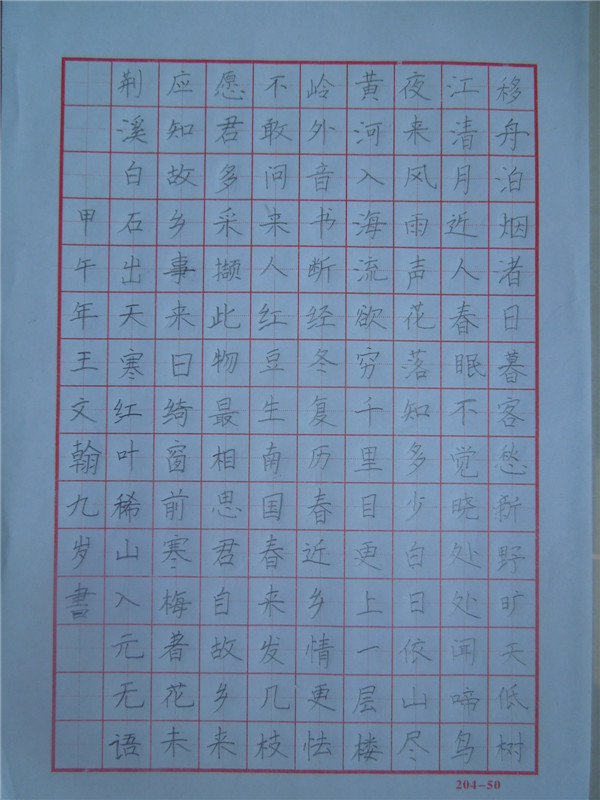 移舟泊烟渚日暮客愁新野旷天低树
江清月近人春眠不觉晓处处闻啼鸟
夜来风雨声花落知多少白日依山尽
黄河入海流欲穷千里目更上一层楼
岭外音书断经冬复历春近乡情更怯
不敢问来人红豆生南国春来发几枝
愿君多采撷此物最相思君自故乡来
应知故乡事来日绮窗前寒梅著花未
荆溪白石出天寒红叶稀山入元无语
甲午年王文翰九岁書
204-50